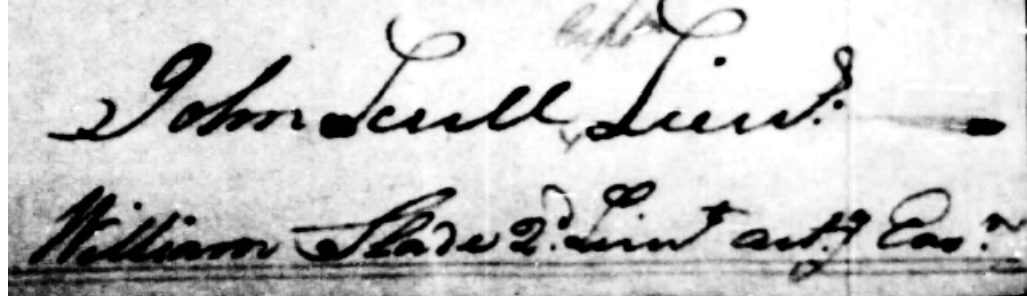 John Scull Lieut.
William Slade 2d. Lieut act.g